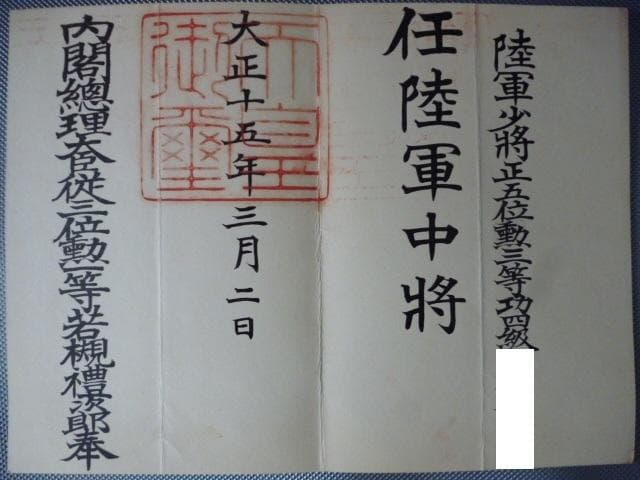 陸軍少將正五位勳三等功四級
任陸軍中將
大正十五年三月二日
天皇御璽
內閣總理大臣從三位勳一等若槻禮次郎奉